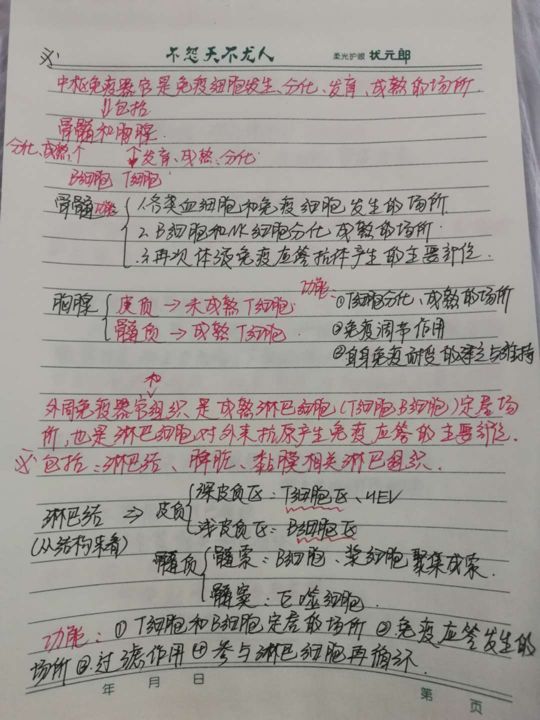 不怨天不尤人 柔光护眼 状元郎
中枢免疫器官是免疫细胞发生、分化、发育、成熟的场所.
⇓包括
骨髓和胸腺.
分化、成熟↑ ↑发育、成熟、分化
B细胞 T细胞
骨髓功能 1.各类血细胞和免疫细胞发生的场所.
2.B细胞和NK细胞分化成熟的场所.
3.再次体液免疫应答抗体产生的主要部位.
胸腺 皮质→未成熟T细胞 功能: ①T细胞分化、成熟的场所
髓质→成熟T细胞. ②免疫调节作用
③自身免疫耐受的建立与维持
和
外周免疫器官组织是成熟淋巴细胞(T细胞B细胞)定居场
所,也是淋巴细胞对外来抗原产生免疫应答的主要部位.
包括:淋巴结、脾脏、黏膜相关淋巴组织.
深皮质区:T细胞区、HEV
淋巴结 ⇒ 皮质
(从结构来看) 浅皮质区:B细胞区
髓质 髓索:B细胞、浆细胞聚集成索.
髓窦:巨噬细胞.
功能:①T细胞和B细胞定居的场所 ②免疫应答发生的
场所 ③过滤作用 ④参与淋巴细胞再循环.
年 月 日 第 页